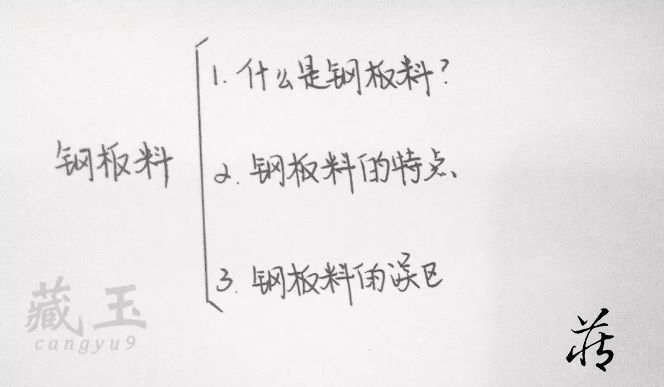 1. 什么是钢板料?
钢板料
2. 钢板料的特点、
3. 钢板料的误区
藏玉
cangyu9